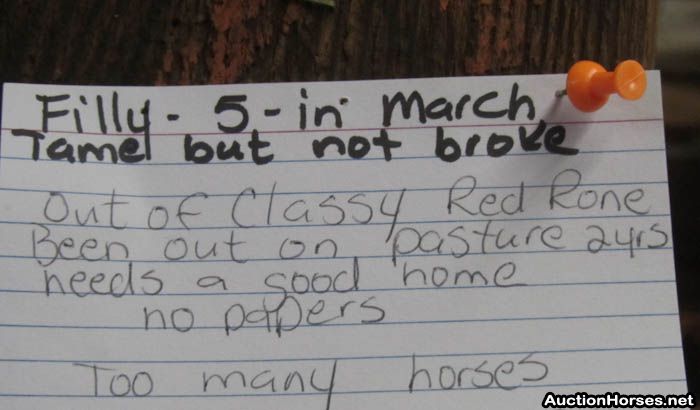 Filly - 5 - in March
Tame but not broke
Out of Classy Red Rone
Been out on pasture 2yrs
needs a good home
no papers
Too many horses
AuctionHorses.net